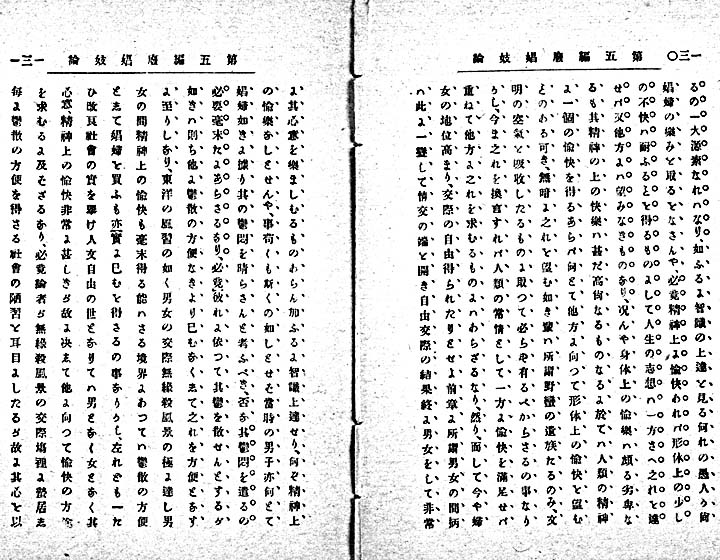 第五編廢娼妓論
一三〇
るの一大源素なれバなり如ふるに智識の上達と見る何れの愚人か尚
娼婦の樂みと取るとなさんや必竟精神上に愉快あれバ形体上の少し
の不快ハ耐ふるとと得るものにして人生の志想ハ一方さへ之れと達
せバ又他方に望みなきものあり、况んや身体上の愉樂ハ頗る劣等な
るも其精神の上の快樂ハ甚だ高尚なるものなるに於てハ人類の精神
に一個の愉快を得るあらバ何とて他方に向つて形体上の愉快と望む
とのある可き、無暗に之れと望む如き輩ハ所謂野蠻の遺族たるのみ、文
明の空氣と吸收したるものに取つて必らず有るべからさるの事なり
し、今ま之れを換言すれバ人類の常情として一方に愉快を滿足せバ
重ねて他方に之れを求むるものにハわらざるなり、然り、而して今や婦
女の地位高まり、交際の自由得られたりとせよ前章に所謂男女の間柄
ハ此に一變して情交の端と開き自由交際の結果終に男女をして非常
第五編廢娼妓論
一三一
に其心意を樂ましむるものわらん加ふるに智識上達せり、何ぞ精神上
の愉樂なしとせんや、事苟くも斯くの如しとせそ當時の男子亦何とて
娼婦如きに據り其の鬱悶を晴らさんと考ふべき、否な其鬱悶を遣るの
必要毫末たにあらさるなり、必竟彼れに依つて其鬱を散せんとするが
如きハ則ち他に鬱散の方便なきより已むなくゑて之れを方便とをす
に至りしなり、東洋の風習の如く男女の交際無縁殺風景の極に達し男
女の間精神上の愉快も毫末得る能ハさる境界にあつてハ鬱散の方便
とゑて娼婦と買ふも亦實に已むと得さるの事ならうし、左れども一た
ひ改良社會の實を擧け人文自由の世となりてハ男となく女となく其
心意精神上の愉快非常に甚しきが故に决ゑて他に向つて愉快の方便
を求むるに及そざるなり、必竟論者が無縁殺風景の交際塲裡に蟄居ゑ
毎に鬱散の方便を得さる社會の陋習と耳目にしたるが故に其心と以